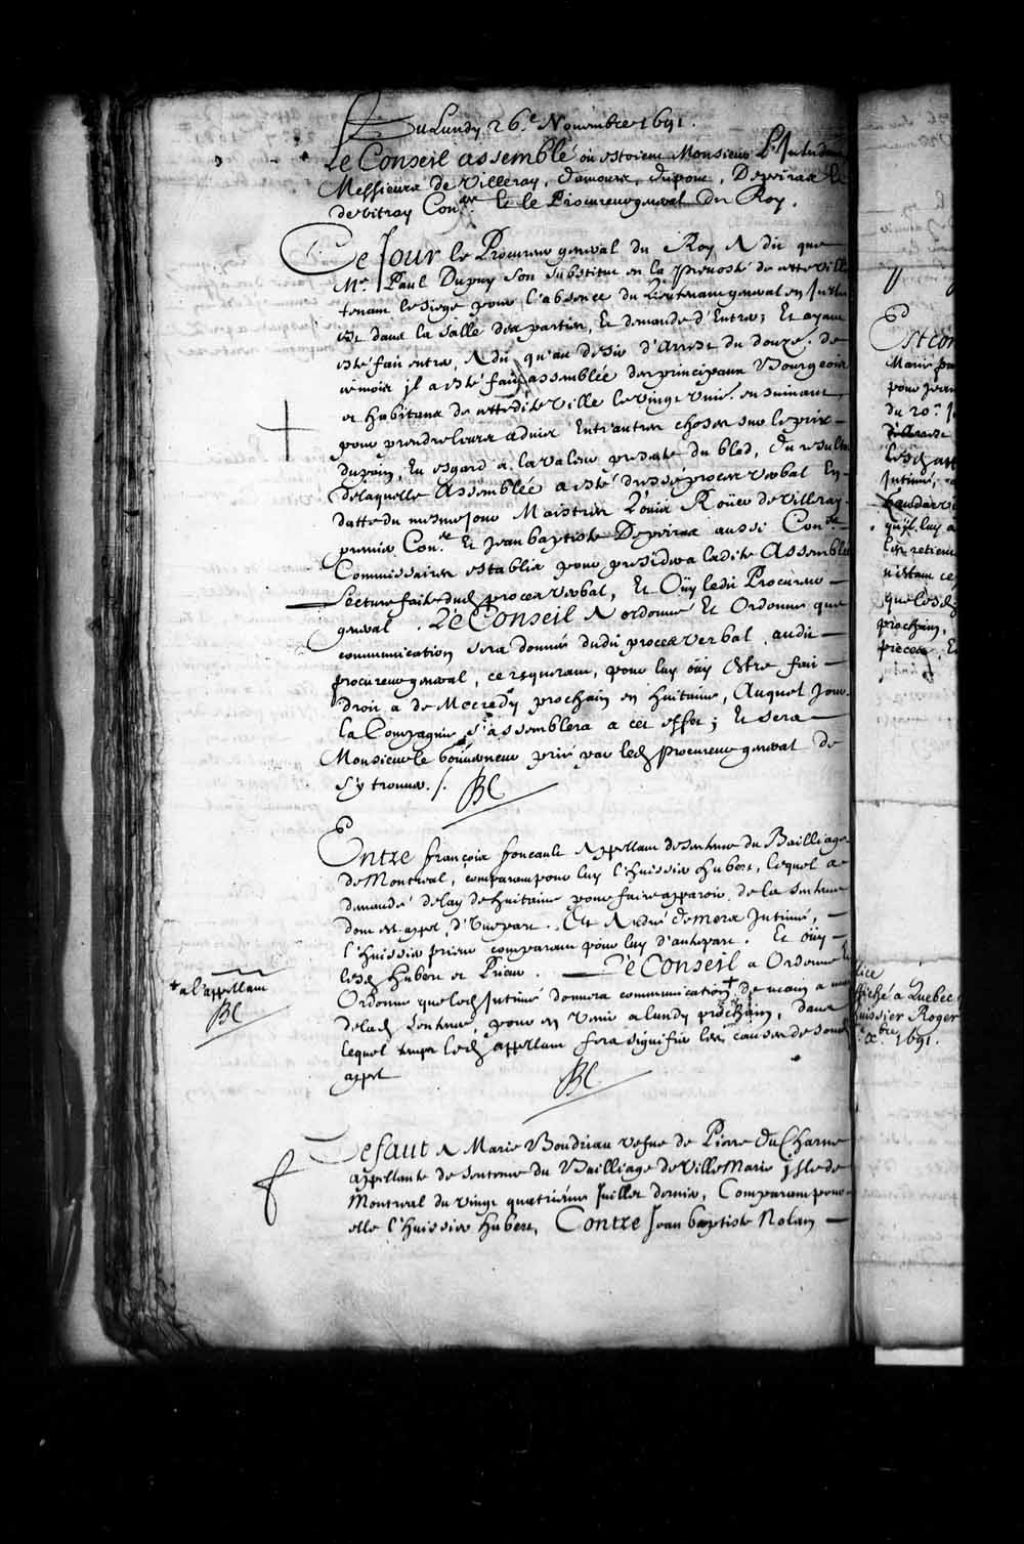 Du Lundy 26.e Novembre 1691.
Le Conseil assemblé ou estoient Monsieur L'Intendant
Messieurs de Villeray, damours, dupont, Depeiras &
de vitray Con.ers Et le Procureur general du Roy.
Ce Jour le Procureur general du Roy A dit que
M.e Paul Dupuy son substitut en la prevosté de cette ville
tenant le siege pour l'absence du Lieutenant general en Icelle
est dans la salle des parties, Et demande d'Entrer; Et ayant
esté fait entrer, A dit qu'au desir d'Arrest du douze. de
ce mois jl a esté fait assemblée des principaux Bourgeois
et habitans de cettedite ville le vingt unie. ensuivant,
pour prendre leurs advis Entr'autres choses sur le prix
du pain, Eu esgard a la valeur presente du bled, du resultat
de laquelle Assemblée a esté dressé procez verbal En
datte du mesme jour Maistres Loüis Roüer de Villeray
premier Con.er Et Jean baptiste Depeiras aussi Con.er
Commissaires establis pour presider a ladite Assemblée
Lecture faite dud procez verbal, Et Oüy ledit Procureur
general. Le Conseil A ordonné Et Ordonne que
communication sera donnée dudit procez verbal audit
procureur general, ce requerant, pour luy oüy Estre fait
droit a de Mecredy prochain en huitaine, Auquel Jour
la Compagnie s'assemblera a cet effet; Et sera
Monsieur le Gouverneur prié par led procureur general de
s'y trouver. /. BC
Entre françois foucault Appellant de sentence du Bailliage
de Montreal, comparant pour luy l'huissier hubert, lequel a
demandé delay de huitaine pour faire apparoir de la sentence
dont est appel, d'Une part. Et André demers Intimé,
l'huissier prieur comparant pour luy d'autre part. Et oüy
lesd hubert et Prieur. Le Conseil a Ordonné Et
Ordonne que led Intimé donnera communication + de main a main
de lad sentence, pour en venir a lundy prochain, dans
lequel temps led appellant fera signifier les causes de sond
appel BC
+ a l'appellant
BC
Defaut A Marie Boudriau vefve de Pierre duCharme
appellante de sentence du Bailliage de Ville Marie jsle de
Montreal du vingt quatriéme Juillet dernier, Comparant pour
elle l'huissier hubert, Contre Jean baptiste Nolan
Est con
Marie
pour
du 20.e
lesd
Intimé,
qu'jl luy a
les retenir
n'estant
que lesd
prochain,
pieces, Et
fiché a Quebec
huissier Roger
xbre 1691.